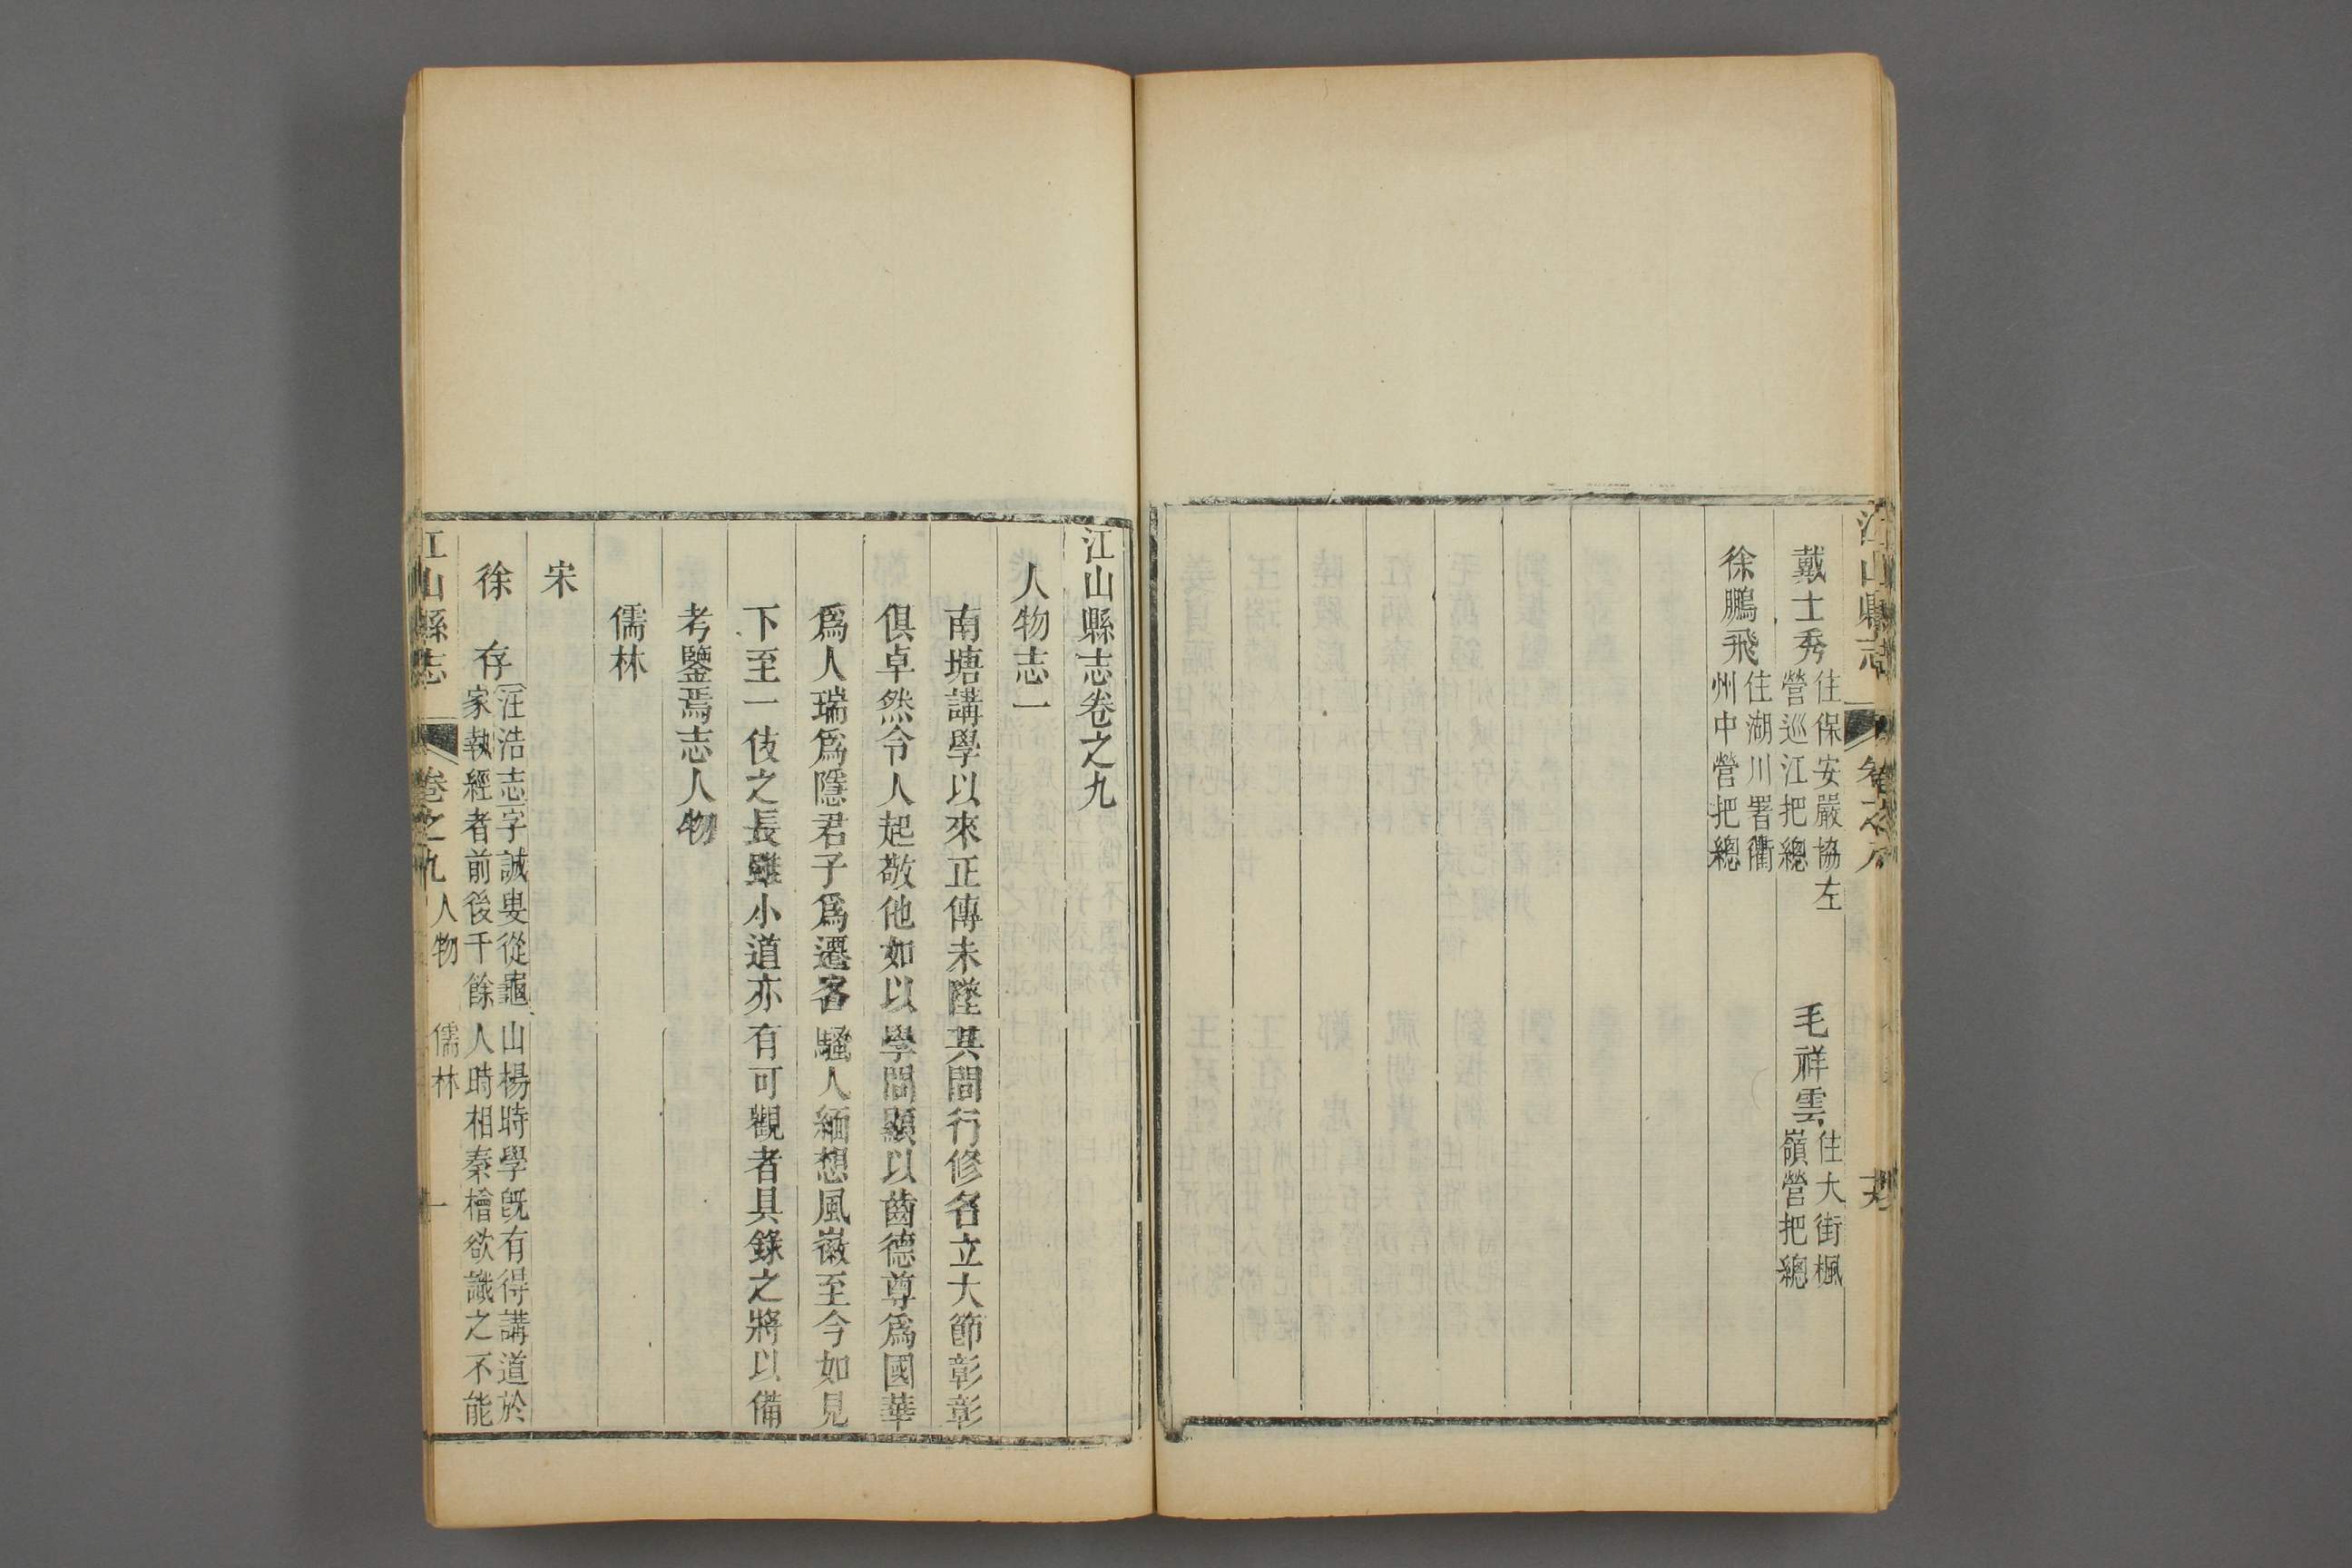 江山縣志
卷之八
戴士秀 住保安嚴協左
營巡江把總
毛祥雲 住大街楓
嶺營把總
徐鵬飛 住湖川署衢
州中營把總
江山縣志卷之九
人物志一
南塘講學以來正傳未墜其間行修名立大節彰彰
俱卓然令人起敬他如以學問顯以齒德尊爲國華
爲人瑞爲隱君子爲遷客騷人緬想風徽至今如見
下至一伎之長雖小道亦有可觀者具錄之將以備
考鑒焉志人物
儒林
宋
徐存 汪浩志字誠叟從龜山楊時學旣有得講道於
家執經者前後千餘人時相秦檜欲譏之不能
江山縣志
卷之九
人物
儒林
一